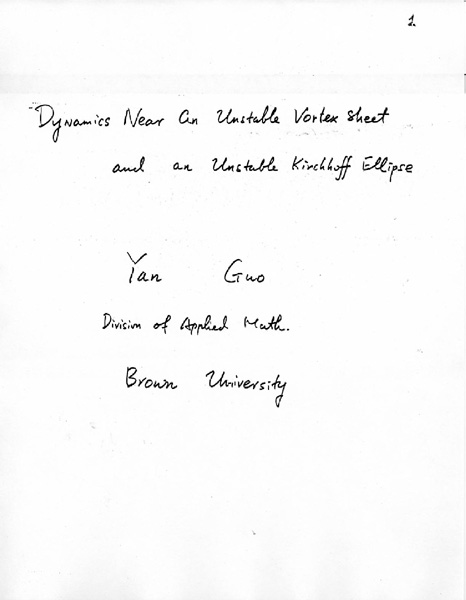 1.
Dynamics Near An Unstable Vortex Sheet
and an Unstable Kirchhoff Ellipse
Yan Guo
Division of Applied Math.
Brown University